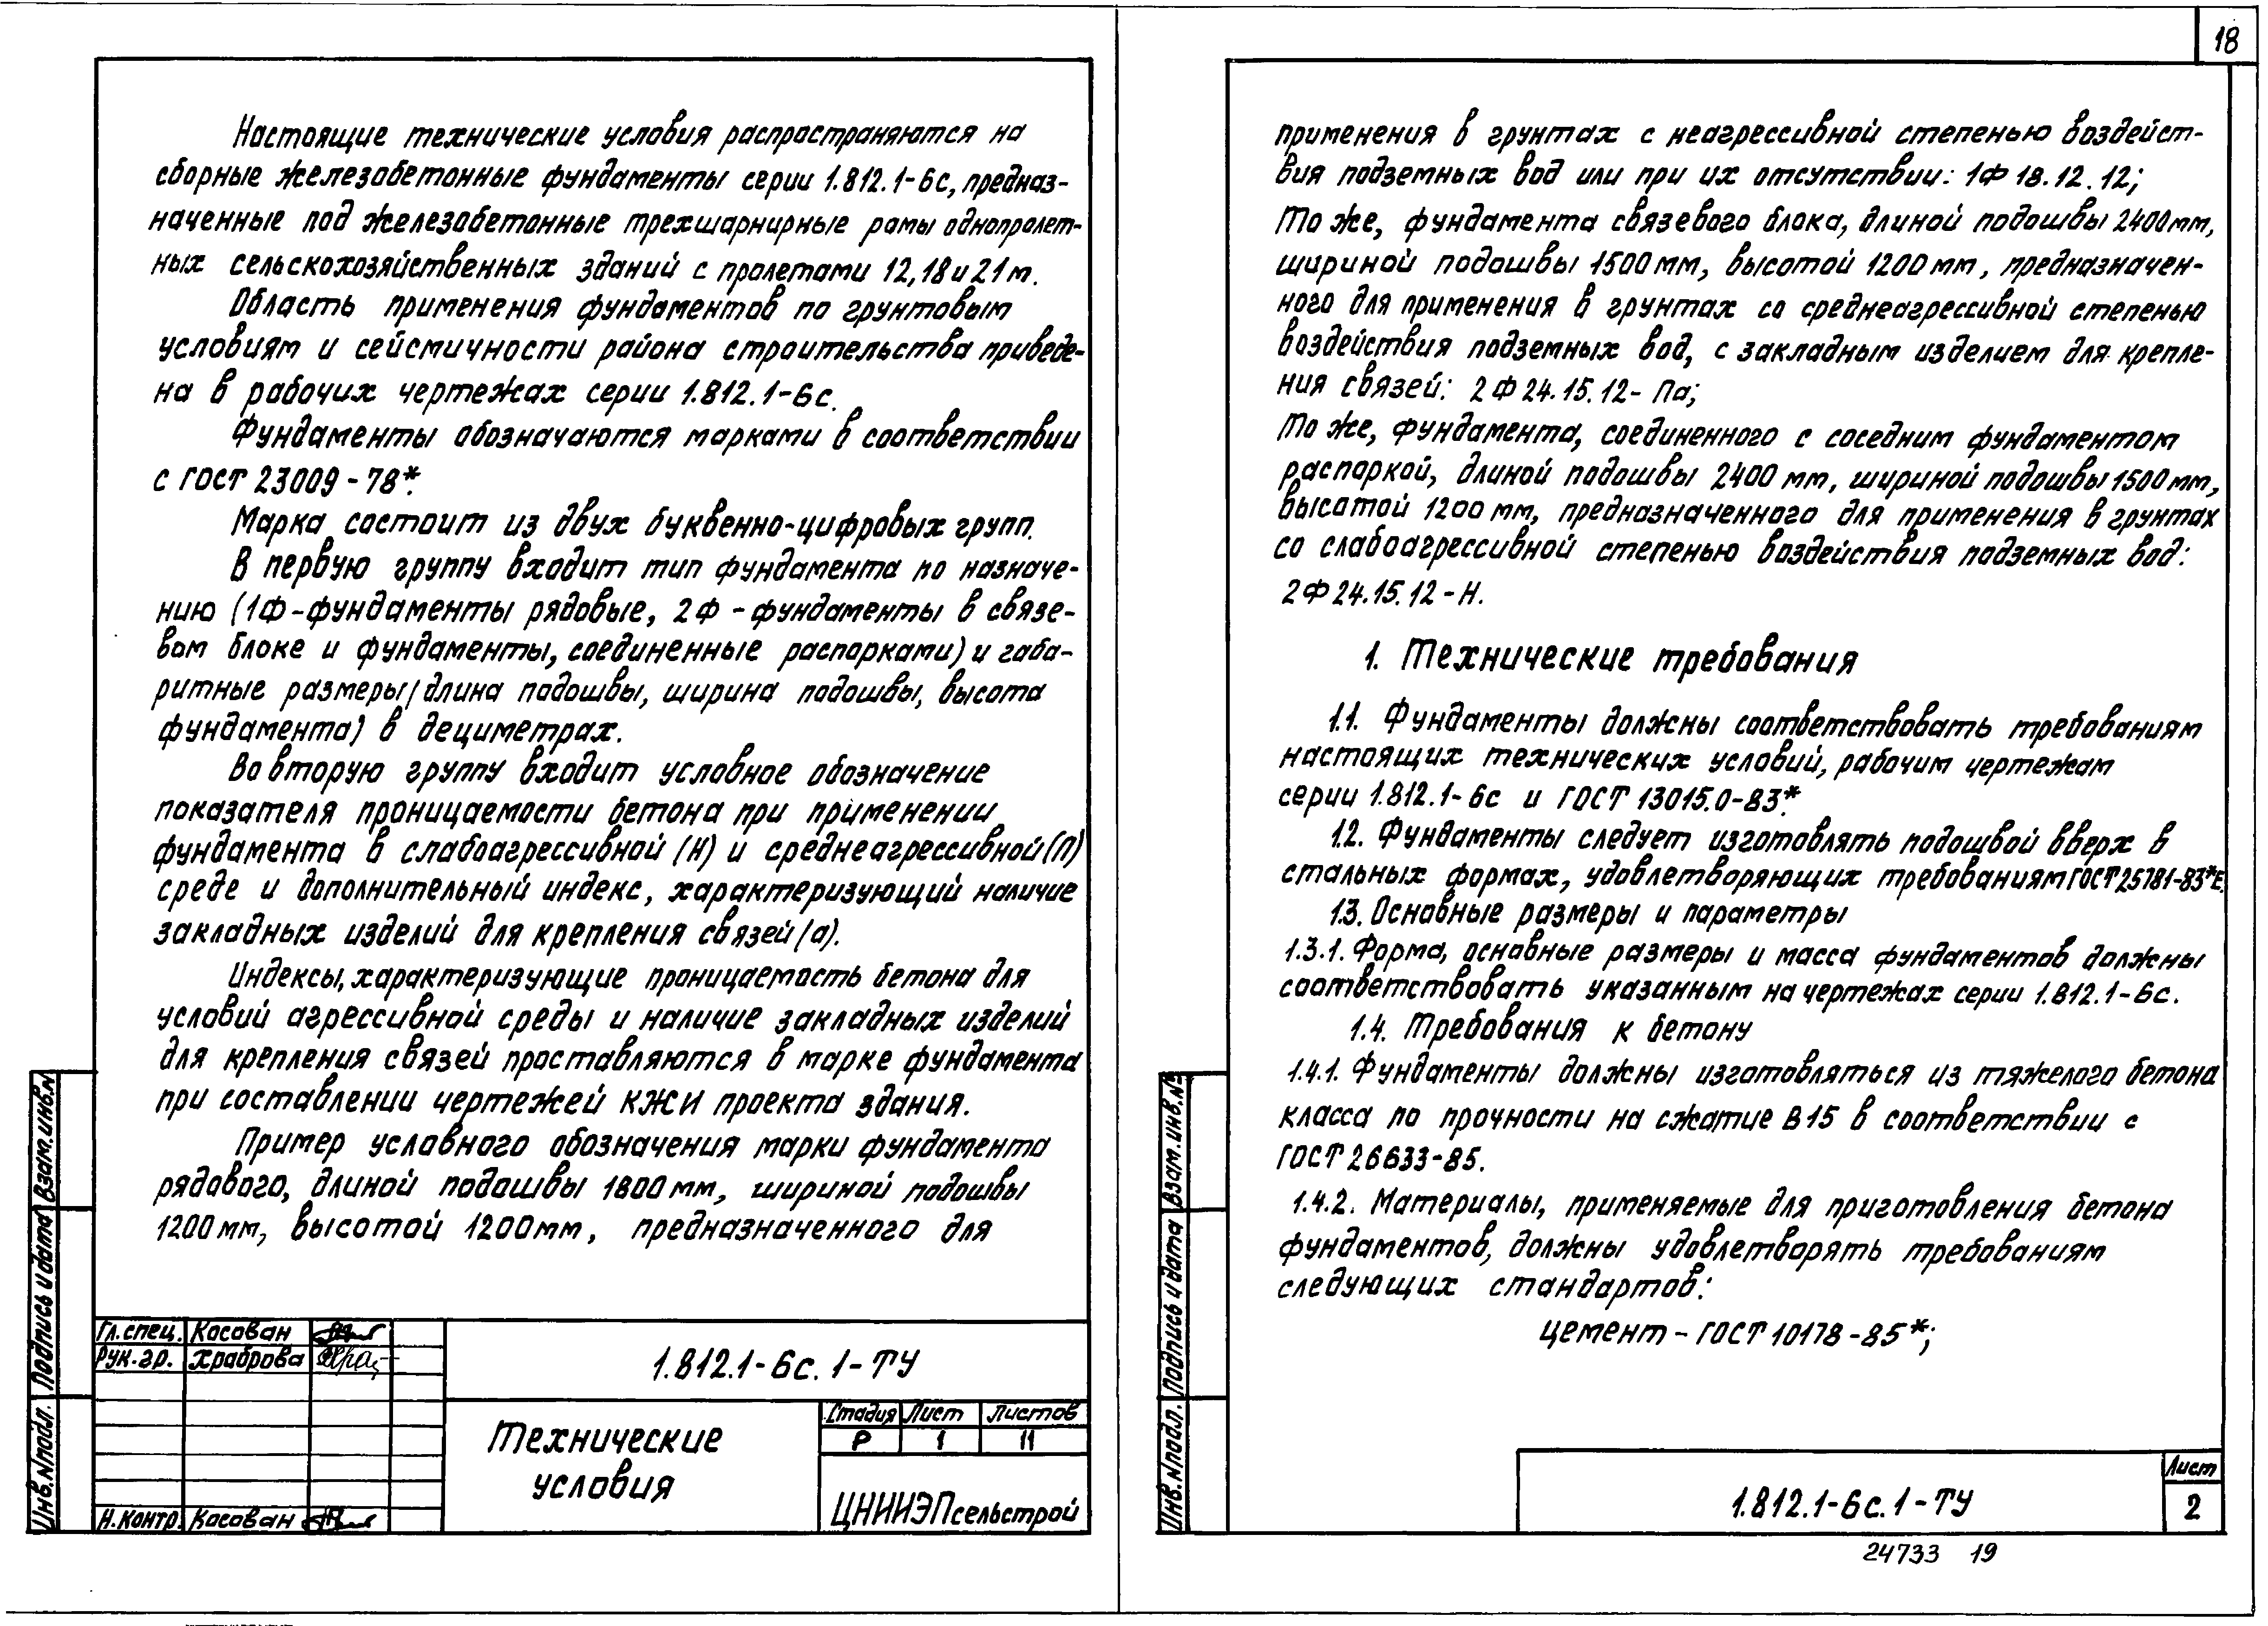 Настоящие технические условия распространяются на
сборные железобетонные фундаменты серии 1.812.1-6с, предназ-
наченные под железобетонные трехшарнирные рамы однопролет-
ных сельскохозяйственных зданий с пролетами 12, 18 и 21 м.
Область применения фундаментов по грунтовым
условиям и сейсмичности района строительства приведе-
на в рабочих чертежах серии 1.812.1-6с.
Фундаменты обозначаются марками в соответствии
с ГОСТ 23009-78*.
Марка состоит из двух буквенно-цифровых групп.
В первую группу входит тип фундамента по назначе-
нию (1Ф-фундаменты рядовые, 2Ф-фундаменты в связе-
вом блоке и фундаменты, соединенные распорками) и габа-
ритные размеры (длина подошвы, ширина подошвы, высота
фундамента) в дециметрах.
Во вторую группу входит условное обозначение
показателя проницаемости бетона при применении
фундамента в слабоагрессивной (Н) и среднеагрессивной (П)
среде и дополнительный индекс, характеризующий наличие
закладных изделий для крепления связей (а).
Индексы, характеризующие проницаемость бетона для
условий агрессивной среды и наличие закладных изделий
для крепления связей проставляются в марке фундамента
при составлении чертежей КЖИ проекта здания.
Пример условного обозначения марки фундамента
рядового, длиной подошвы 1800 мм, шириной подошвы
1200 мм, высотой 1200 мм, предназначенного для
Гл. спец. Косован
Рук. гр. Храброва
Н. контр. Косован
1.812.1-6с.1-ТУ
Технические
условия
Стадия Лист Листов
Р 1 11
ЦНИИЭПсельстрой
Инв.№подл. Подпись и дата Взам.инв.№
18
применения в грунтах с неагрессивной степенью воздейст-
вия подземных вод или при их отсутствии: 1Ф 18.12.12;
То же, фундамента связевого блока, длиной подошвы 2400 мм,
шириной подошвы 1500 мм, высотой 1200 мм, предназначен-
ного для применения в грунтах со среднеагрессивной степенью
воздействия подземных вод, с закладным изделием для крепле-
ния связей: 2Ф 24.15.12-Па;
То же, фундамента, соединенного с соседним фундаментом
распоркой, длиной подошвы 2400 мм, шириной подошвы 1500 мм,
высотой 1200 мм, предназначенного для применения в грунтах
со слабоагрессивной степенью воздействия подземных вод:
2Ф 24.15.12-Н.
1. Технические требования
1.1. Фундаменты должны соответствовать требованиям
настоящих технических условий, рабочим чертежам
серии 1.812.1-6с и ГОСТ 13015.0-83*.
1.2. Фундаменты следует изготовлять подошвой вверх в
стальных формах, удовлетворяющих требованиям ГОСТ 25781-83*Е.
1.3. Основные размеры и параметры
1.3.1. Форма, основные размеры и масса фундаментов должны
соответствовать указанным на чертежах серии 1.812.1-6с.
1.4. Требования к бетону
1.4.1. Фундаменты должны изготовляться из тяжелого бетона
класса по прочности на сжатие В15 в соответствии с
ГОСТ 26633-85.
1.4.2. Материалы, применяемые для приготовления бетона
фундаментов, должны удовлетворять требованиям
следующих стандартов:
цемент - ГОСТ 10178-85*;
Инв.№подл. Подпись и дата Взам.инв.№
1.812.1-6с.1-ТУ
Лист
2
24733 19